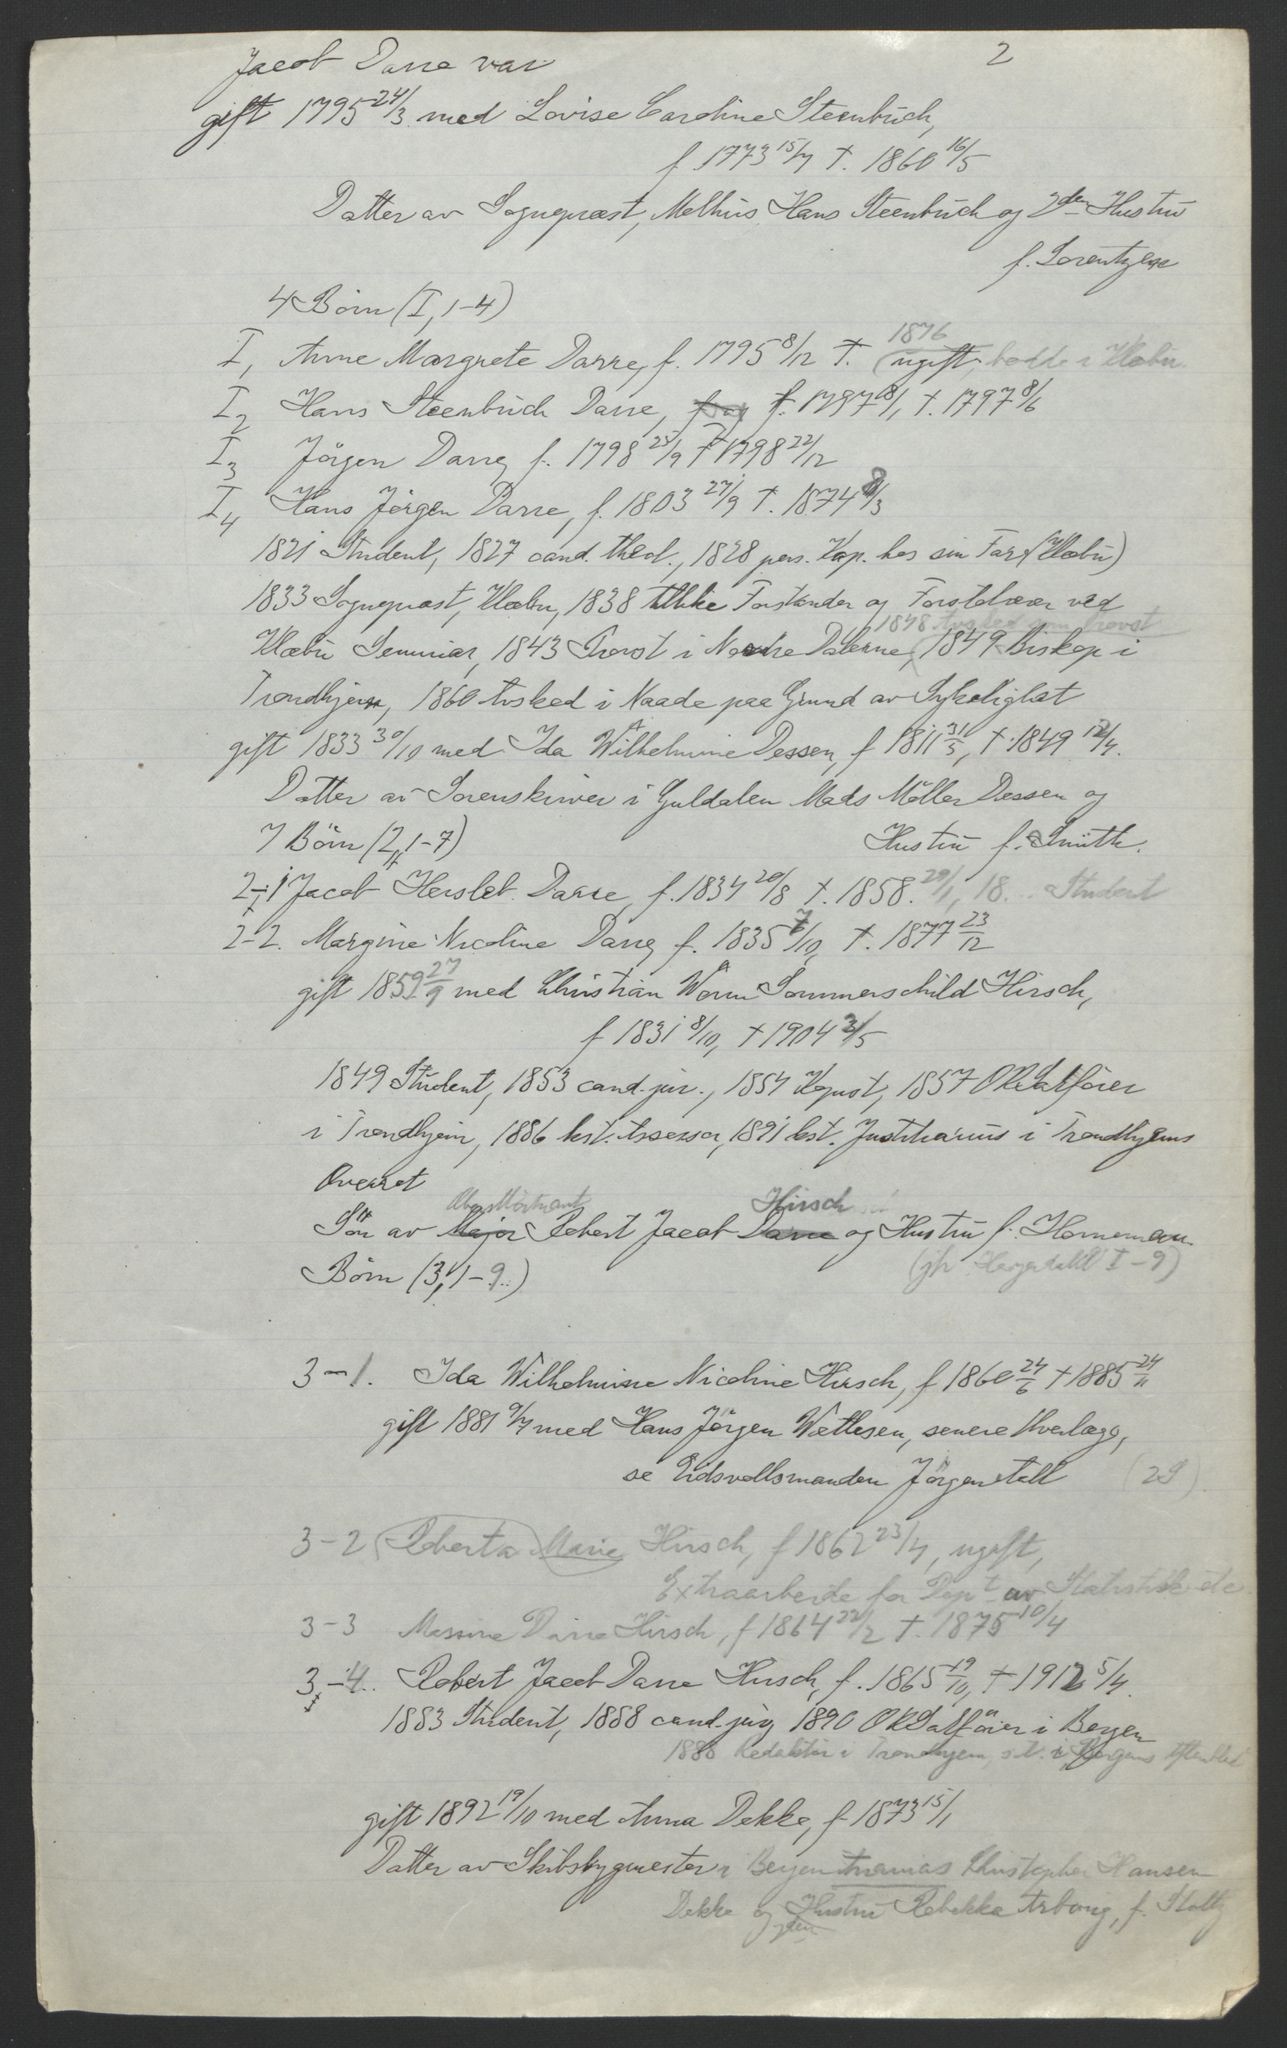 2
Jacob Darre var
gift 1795 24/3 med Lovise Caroline Steenbuch,
f. 1773 15/7 †. 1860 16/5
Datter av Sogneprest, Melhus, Hans Steenbuch og 2den Hustru
f. Lorentzen
4 Börn (I, 1-4)
I, Anne Margrete Darre, f. 1795 8/12 †. 1876 (ugift, bodde i Klæbu.
I 2 Hans Steenbuch Darre, f. 1797 8/1, †. 1797 8/6
I 3 Jörgen Darre, f. 1798 25/9 † 1798 22/12
I 4 Hans Jörgen Darre, f. 1803 27/9 †. 1874 8/3
1821 Student, 1827 cand. theol., 1828 pers. Kap. hos sin Far (Klæbu)
1833 Sogneprest, Klæbu, 1838 tillike Forstander og Förstelærer ved
1848 Avsked som Provst
Klæbu Seminar, 1843 Provst i Nordre Dalerne, 1849 Biskop i
Trondhjem, 1860 Avsked i Naade paa Grund av Sykelighet
gift 1833 30/10 med Ida Wilhelmine Dessen, f 1811 31/5, † 1849 12/4.
Datter av Sorenskriver i Guldalen Mads Möller Dessen og
7 Börn (2, 1-7) Hustru f. Smith.
2-1 Jacob Hersleb Darre, f. 1834 20/8 †. 1858. 29/1, 18.. Student
2-2. Margine Nicoline Darre, f. 1835 7/10, †. 1877 23/12
gift 1859 27/9 med Christian Worm Sommerschild Hirsch,
f 1831 8/10, † 1904 2/5
1849 Student, 1853 cand. jur., 1854 Kgust, 1857 ORSakförer
i Trondhjem, 1886 kst. Assessor, 1891 kst. Justitiarius i Trondhjems
Overret
Oberstlöitnant Hirsch
Sön av Major Robert Jacob Darre og Hustru f. Horneman
Börn (3, 1-9.) (jfr. I-9)
3-1. Ida Wilhelmine Nicoline Hirsch, f 1860 24/6 † 1885 24/11
gift 1881 9/7 med Hans Jörgen Wætlesen, senere Overlæge,
se Eidsvollsmanden Jörgen Aall (29)
3-2 (Roberta Marie Hirsch, f 1862 23/7, ugift,
Extraarbeide for Dept av Statistiske
3-3 Massine Darre Hirsch, f 1864 22/2 †. 1875 10/4
3-4. Robert Jacob Darre Hirsch, f. 1865 19/10, † 1912 5/4.
1883 Student, 1888 cand. jur, 1890 ORSakförer i Bergen
1888 Redaktör i Trondhjem, s. A. i Bergens Aftenblad
gift 1892 19/10 med Anna Dekke, f. 1873 15/1
Datter av Skibsbygmester i Bergen Ananias Christopher Hansen
Dekke og Hustru Rebekka Arboug, f. Stoltz